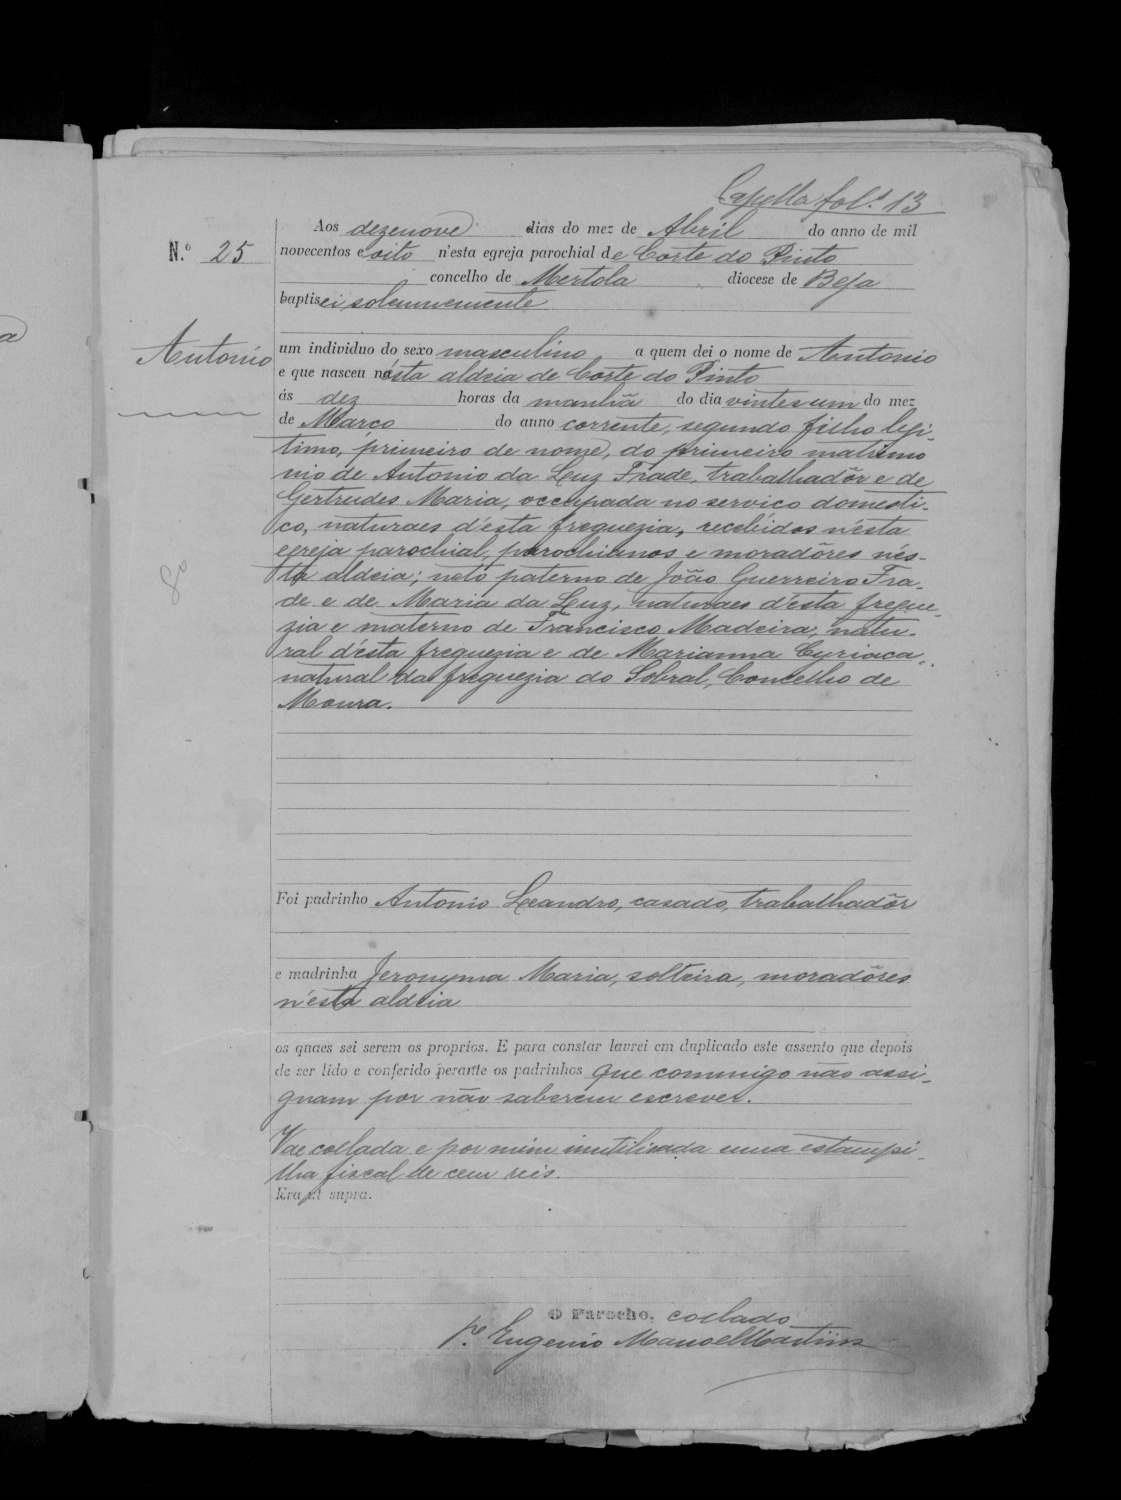 Capella fol.º 13
Aos dezenove dias do mez de Abril do anno de mil
N.º 25
novecentos e oito n'esta egreja parochial de Corte do Pinto
concelho de Mertola diocese de Beja
baptisei solemnemente
Antonio
um individuo do sexo masculino a quem dei o nome de Antonio
e que nasceu n'ésta aldeia de Corte do Pinto
ás dez horas da manhã do dia vinte e um do mez
de Março do anno corrente, segundo filho legi-
timo, primeiro de nome, do primeiro matrimo
nio de Antonio da Luz Frade, trabalhadôr e de
Gertrudes Maria, occupada no serviço domesti-
co, naturaes d'ésta freguezia, recebidos n'ésta
egreja parochial, parochianos e moradôres nés-
ta aldeia; neto paterno de João Guerreiro Fra-
de e de Maria da Luz, naturaes d'ésta fregue-
zia e materno de Francisco Madeira, natu-
ral d'ésta freguezia e de Marianna Cyriaca,
natural da freguezia do Sobral, Concelho de
Moura.
Foi padrinho Antonio Leandro, casado, trabalhadôr
e madrinha Jeronyma Maria, solteira, moradôres
n'ésta aldeia
os quaes sei serem os proprios. E para constar lavrei em duplicado este assento que depois
de ser lido e conferido perante os padrinhos que commigo não assi-
gnam por não saberem escrever.
Vae collada e por mim inutilisada uma estampi-
lha fiscal de cem reis.
Era ut supra.
O Parocho, collado
P.e Eugenio Manoel Martins